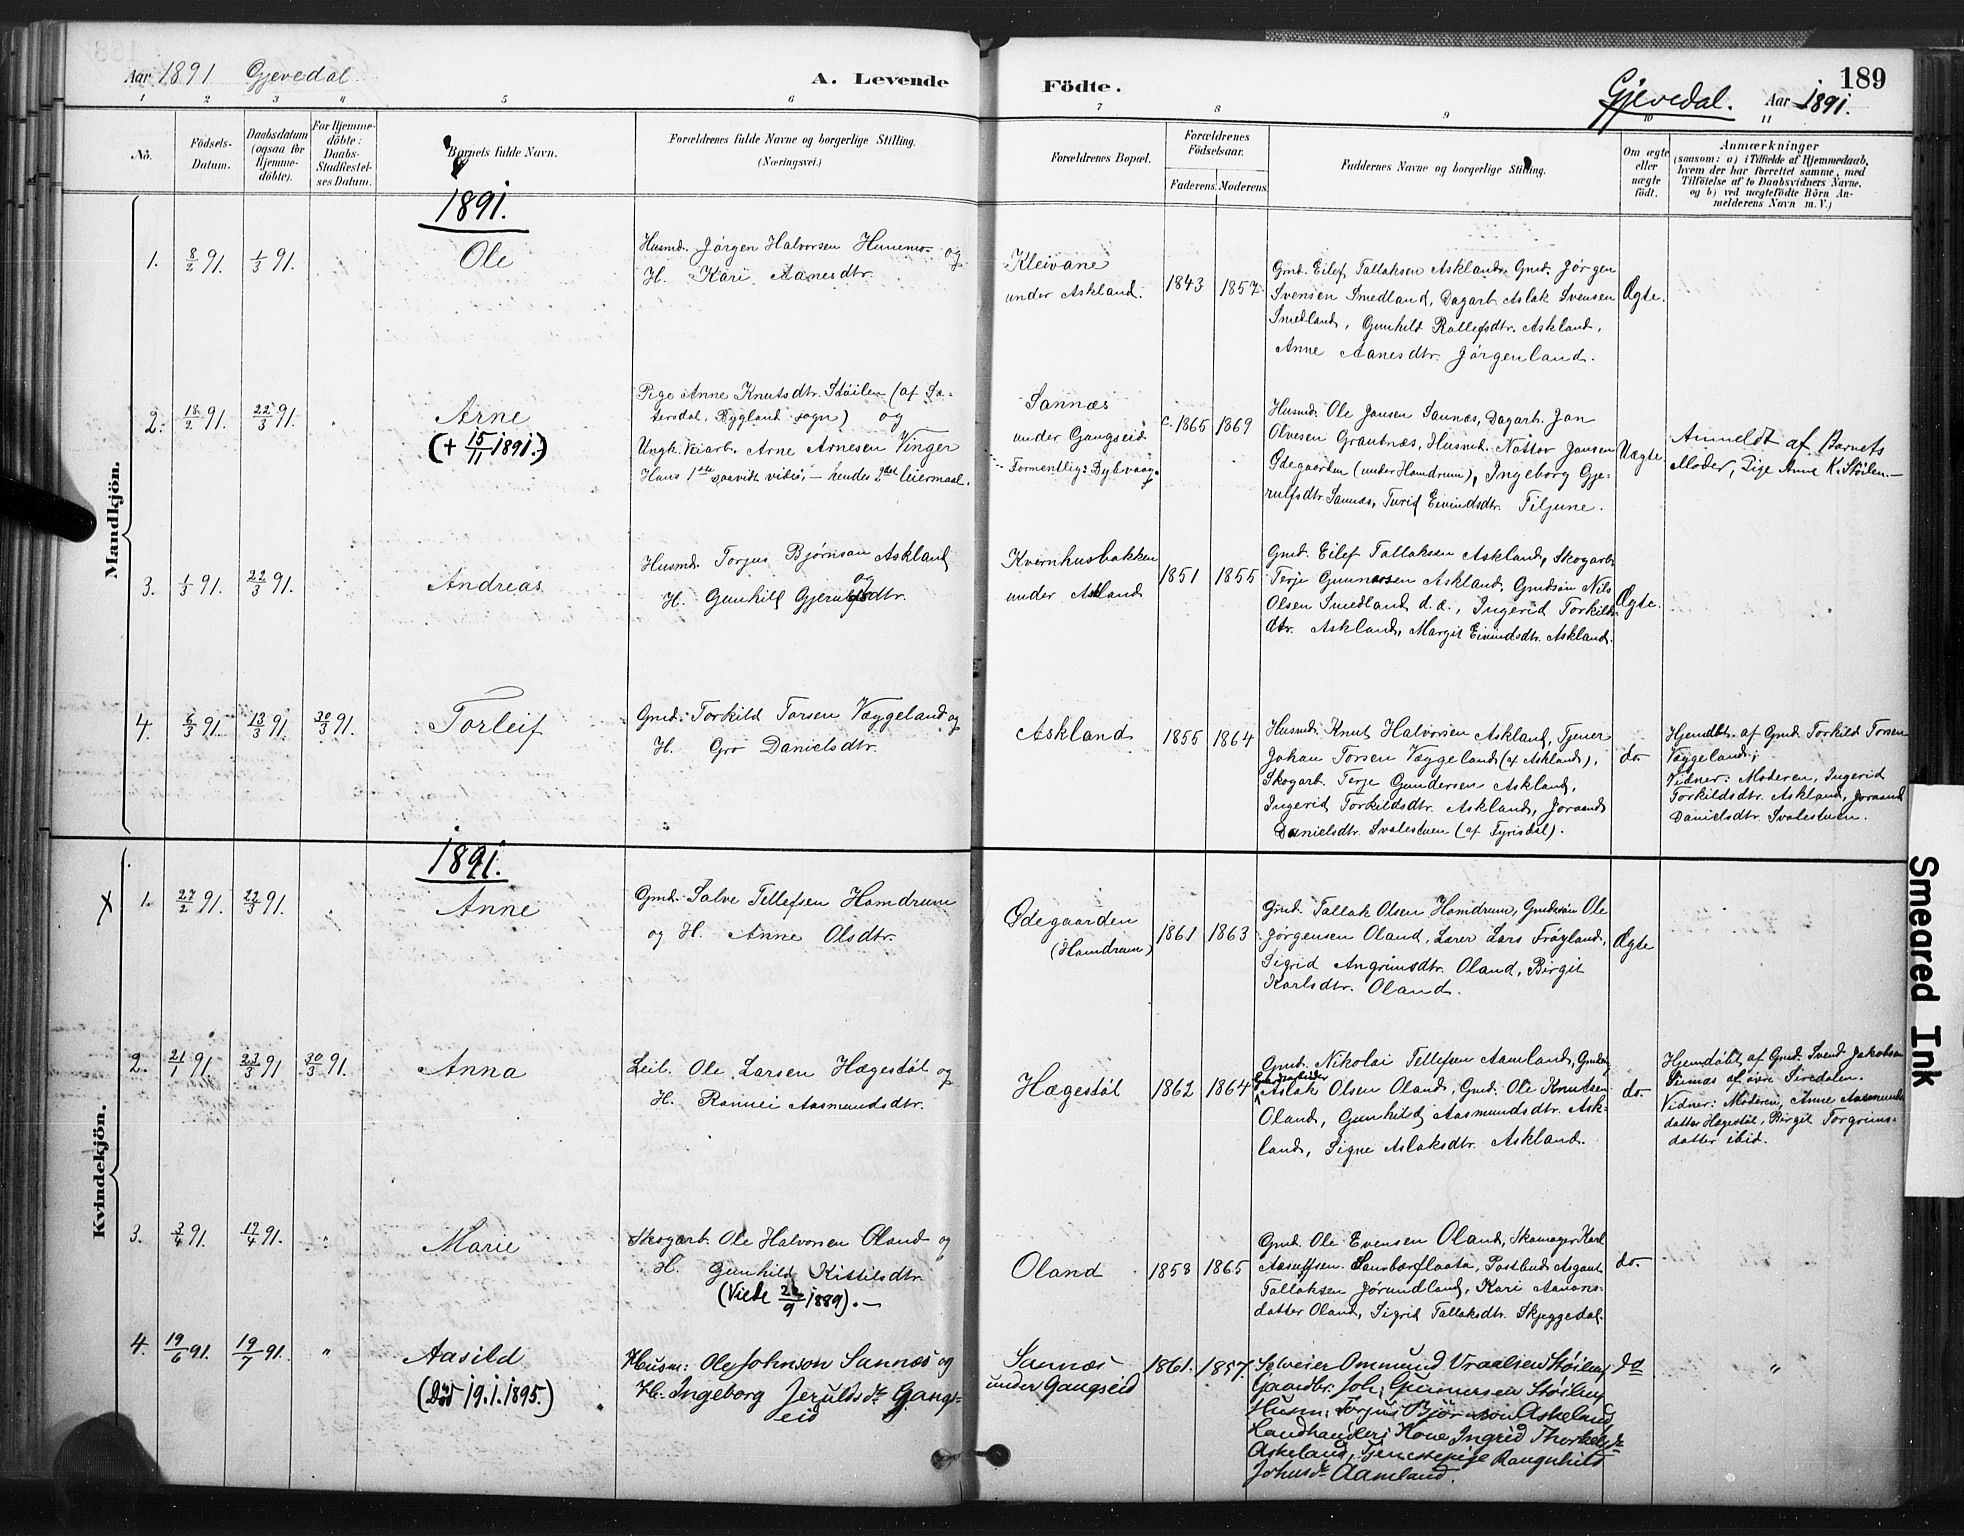 Aar 1891 Gjevedal. A. Levende Födte. Gjevedal. Aar 1891. 189
1 2 3 4 5 6 7 8 9 10 11
No. Födsels-Datum. Daabsdatum (ogsaa for Hjemme-döbte). For Hjemme-döbte: Daabs-Stadfæstel-ses Datum. Barnets fulde Navn. Forældrenes fulde Navne og borgerlige Stilling. (Næringsvei.) Forældrenes Bopæl. Forældrenes Födselsaar. Faderens. Moderens. Faddernes Navne og borgerlige Stilling. Om ægte eller uægte födt. Anmærkninger (saasom: a) i Tilfælde af Hjemmedaab, hvem der har forrettet samme, med Tilföielse af to Daabsvidners Navne, og b) ved uægtefödte Börn An-melderens Navn m. V.)
Mandkjön.
1891.
1. 8/2 91. 1/3 91. Ole
Husmd. Jörgen Halvorsen og
H. Kari Aanesdtr.
Kleivane
under Askland.
1843 1857
Gmd. Eilef Tallaksen Askland, Gmd. Jörgen
Svensen Smedland, Dagarb. Aslak Svensen
Smedland, Gunhild Rollefsdtr. Askland,
Anne Aanesdtr. Jörgenland.
Ægte.
2. 18/2 91. 22/3 91. Arne
(+ 15/11 1891.)
Pige Anne Knutsdtr. Stöilen (af Sæ-
tersdal, Bygland sogn) og
Ungk. Veiarb. Arne Arnesen Vinger
Hans 1ste saavidt vides, – hendes 2det leiermaal.
Sannæs
under Gangseid
Formentlig: Dybvaag
c. 1865 1869
Husmd. Ole Jonsen Sannæs, Dagarb. Jon
Olvesen Grautnæs, Husmd. Nottov Jonsen
Ødegaarden (under Homdrum), Ingeborg Gje-
rulfsdtr Sannæs, Turid Eivindsdtr. Tiljune.
Uægte.
Anmeldt af Barnets
Moder, Pige Anne K. Stöilen –
3. 1/3 91. 22/3 91. Andreas
Husmd. Torjus Bjørnson Askland
og
H. Gunhild Gjerulfsdtr.
Kvernhusbakken
under Askland
1851 1855
Gmd. Eilef Tallaksen Askland, Skogarb.
Terje Gunnarsen Askland, Gmdsön Nils
Olsen Smedland d. æ., Ingerid Torkilds-
dtr. Askland, Margit Eivindsdtr. Askland.
Ægte.
4. 6/3 91. 13/3 91. 30/3 91. Torleif
Gmd. Torkild Torsen Væggeland og
H. Gro Danielsdtr.
Askland
1855 1864
Husmd. Knut Halvorsen Askland, Tjener
Johan Torsen Væggeland (af Askland),
Skogarb. Terje Gundersen Askland,
Ingerid Torkildsdtr. Askland, Joraand
Danielsdtr. Svalestuen (af Fyrisdal).
do.
Hjemdbt. af Gmd Torkild Torsen
Væggeland;
Vidner: Moderen, Ingerid
Torkildsdtr. Askland, Joraand
Danielsdtr. Svalestuen.
Kvindekjön.
1891.
X 1. 27/2 91. 22/3 91. Anne
Gmd. Salve Tellefsen Homdrum
og H. Anne Olsdtr.
Ødegaarden
(Homdrum)
1861 1863
Gmd. Tallak Olsen Homdrum, Gmdssön Ole
Jörgensen Oland, Lærer Lars Fröyland,
Sigrid Angrimsdtr. Oland, Birgit
Karlsdtr. Oland.
Ægte
2. 21/1 91. 23/3 91 30/3 91. Anna
Leil. Ole Larsen Hægestöl og
H. Rannei Aasmundsdtr.
Hægestöl
1862 1864
Gmd. Nikolai Tellefsen Aamland,
Gaardarbeider
Aslak Olsen Oland, Gmd. Ole Knutsen
Oland, Gunhild Aasmundsdtr. Ask-
land, Signe Aslaksdtr. Askland.
do.
Hjemdöbt af Gmd. Svend Jakobsen
af övre Siredalen.
Vidner: Moderen, Anne Aasmunds-
datter Hægestöl, Birgit Torgrims-
datter ibid.
3. 3/4 91. 19/4 91. " Marie
Skogarb. Ole Halvorsen Oland og
H. Gunhild Kittilsdtr.
(Viede 22/9 1889). –
Oland
1858 1865
Gmd. Ole Evensen Oland, Skomager Karl
Aasulfsen Saurbærflaata, Postbud Asgaut
Tallaksen Jørundland, Kari Aanons-
datter Oland, Sigrid Tallaksdtr. Skjeggedal.
do.
4. 19/6 91. 19/7 91. " Aasild
(Död 19.1.1895.)
Husm: Ole Johnson Sannæs og
H. Ingeborg Jerulfsdr Gangs-
eid
Sannæs
under Gangseid
1861. 1857.
Selveier Ommund Vraalsen Støilen,
Gaardbr. Joh: Gunnersen Støilen,
Husm: Torjus Bjørnson Askeland
Landhandleri Kone Ingrid Thorkelsdr
Askeland, Tjenestepige Rangnhild
Johusdr Aamland.
do
"
Smeared Ink